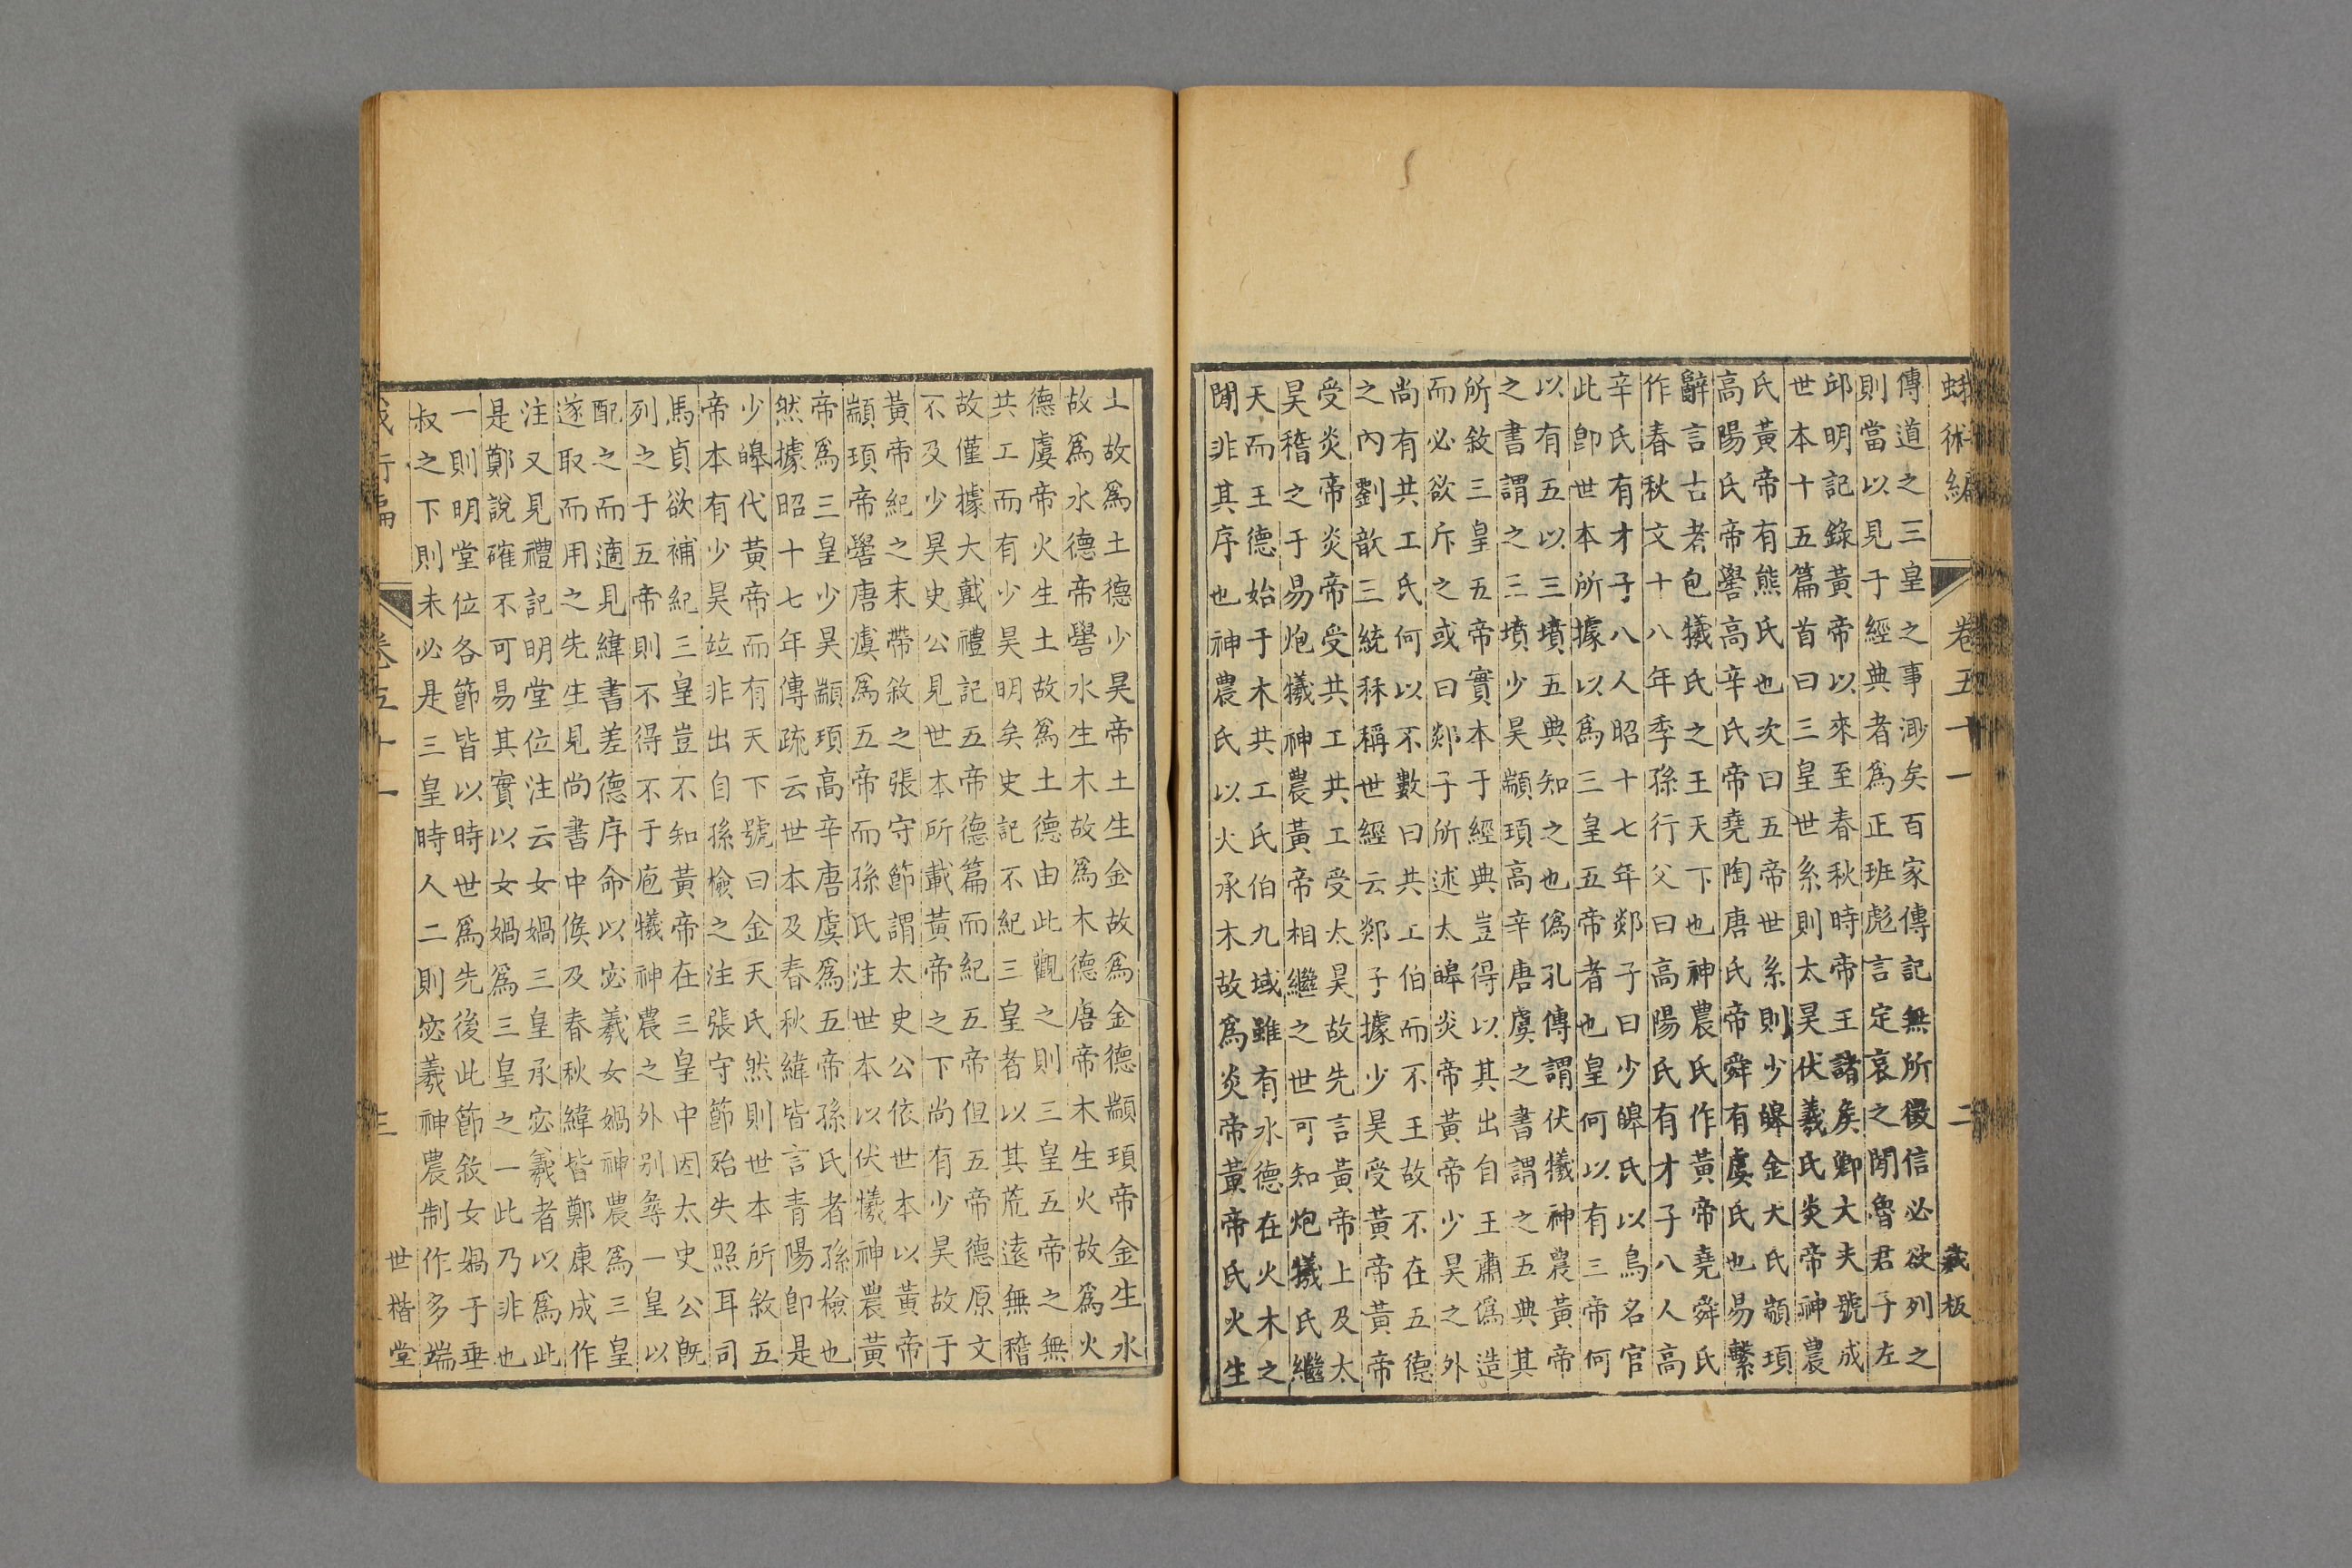 蛾術編 卷五十一 二 藏板
傳道之三皇之事渺矣百家傳記無所徵信必欲列之
則當以見于經典者爲正班彪言定哀之閒魯君子左
邱明記錄黃帝以來至春秋時帝王諸矦卿大夫號成
世本十五篇首曰三皇世系則太昊伏羲氏炎帝神農
氏黃帝有熊氏也次曰五帝世系則少皞金天氏顓頊
高陽氏帝嚳高辛氏帝堯陶唐氏帝舜有虞氏也易繫
辭言古者包犧氏之王天下也神農氏作黃帝堯舜氏
作春秋文十八年季孫行父曰高陽氏有才子八人高
辛氏有才子八人昭十七年郯子曰少皞氏以鳥名官
此卽世本所據以爲三皇五帝者也皇何以有三帝何
以有五以三墳五典知之也僞孔傳謂伏犧神農黃帝
之書謂之三墳少昊顓頊高辛唐虞之書謂之五典其
所敘三皇五帝實本于經典豈得以其出自王肅僞造
而必欲斥之或曰郯子所述太皞炎帝黃帝少昊之外
尚有共工氏何以不數曰共工伯而不王故不在五德
之內劉歆三統秝稱世經云郯子據少昊受黃帝黃帝
受炎帝炎帝受共工共工受太昊故先言黃帝上及太
昊稽之于易炮犧神農黃帝相繼之世可知炮犧氏繼
天而王德始于木共工氏伯九域雖有水德在火木之
閒非其序也神農氏以火承木故爲炎帝黃帝氏火生
土故爲土德少昊帝土生金故爲金德顓頊帝金生水
故爲水德帝嚳水生木故爲木德唐帝木生火故爲火
德虞帝火生土故爲土德由此觀之則三皇五帝之無
共工而有少昊明矣史記不紀三皇者以其荒遠無稽
故僅據大戴禮記五帝德篇而紀五帝但五帝德原文
不及少昊史公見世本所載黃帝之下尚有少昊故于
黃帝紀之末帶敘之張守節謂太史公依世本以黃帝
顓頊帝嚳唐虞爲五帝而孫氏注世本以伏犧神農黃
帝爲三皇少昊顓頊高辛唐虞爲五帝孫氏者孫檢也
然據昭十七年傳疏云世本及春秋緯皆言青陽卽是
少皞代黃帝而有天下號曰金天氏然則世本所敘五
帝本有少昊竝非出自孫檢之注張守節殆失照耳司
馬貞欲補紀三皇豈不知黃帝在三皇中因太史公旣
列之于五帝則不得不于庖犧神農之外别尋一皇以
配之而適見緯書差德序命以宓羲女媧神農爲三皇
遂取而用之先生見尚書中候及春秋緯皆鄭康成作
注又見禮記明堂位注云女媧三皇承宓羲者以爲此
是鄭說確不可易其實以女媧爲三皇之一此乃非也
一則明堂位各節皆以時世爲先後此節敘女媧于垂
叔之下則未必是三皇時人二則宓羲神農制作多端
卷五十一 三 世楷堂